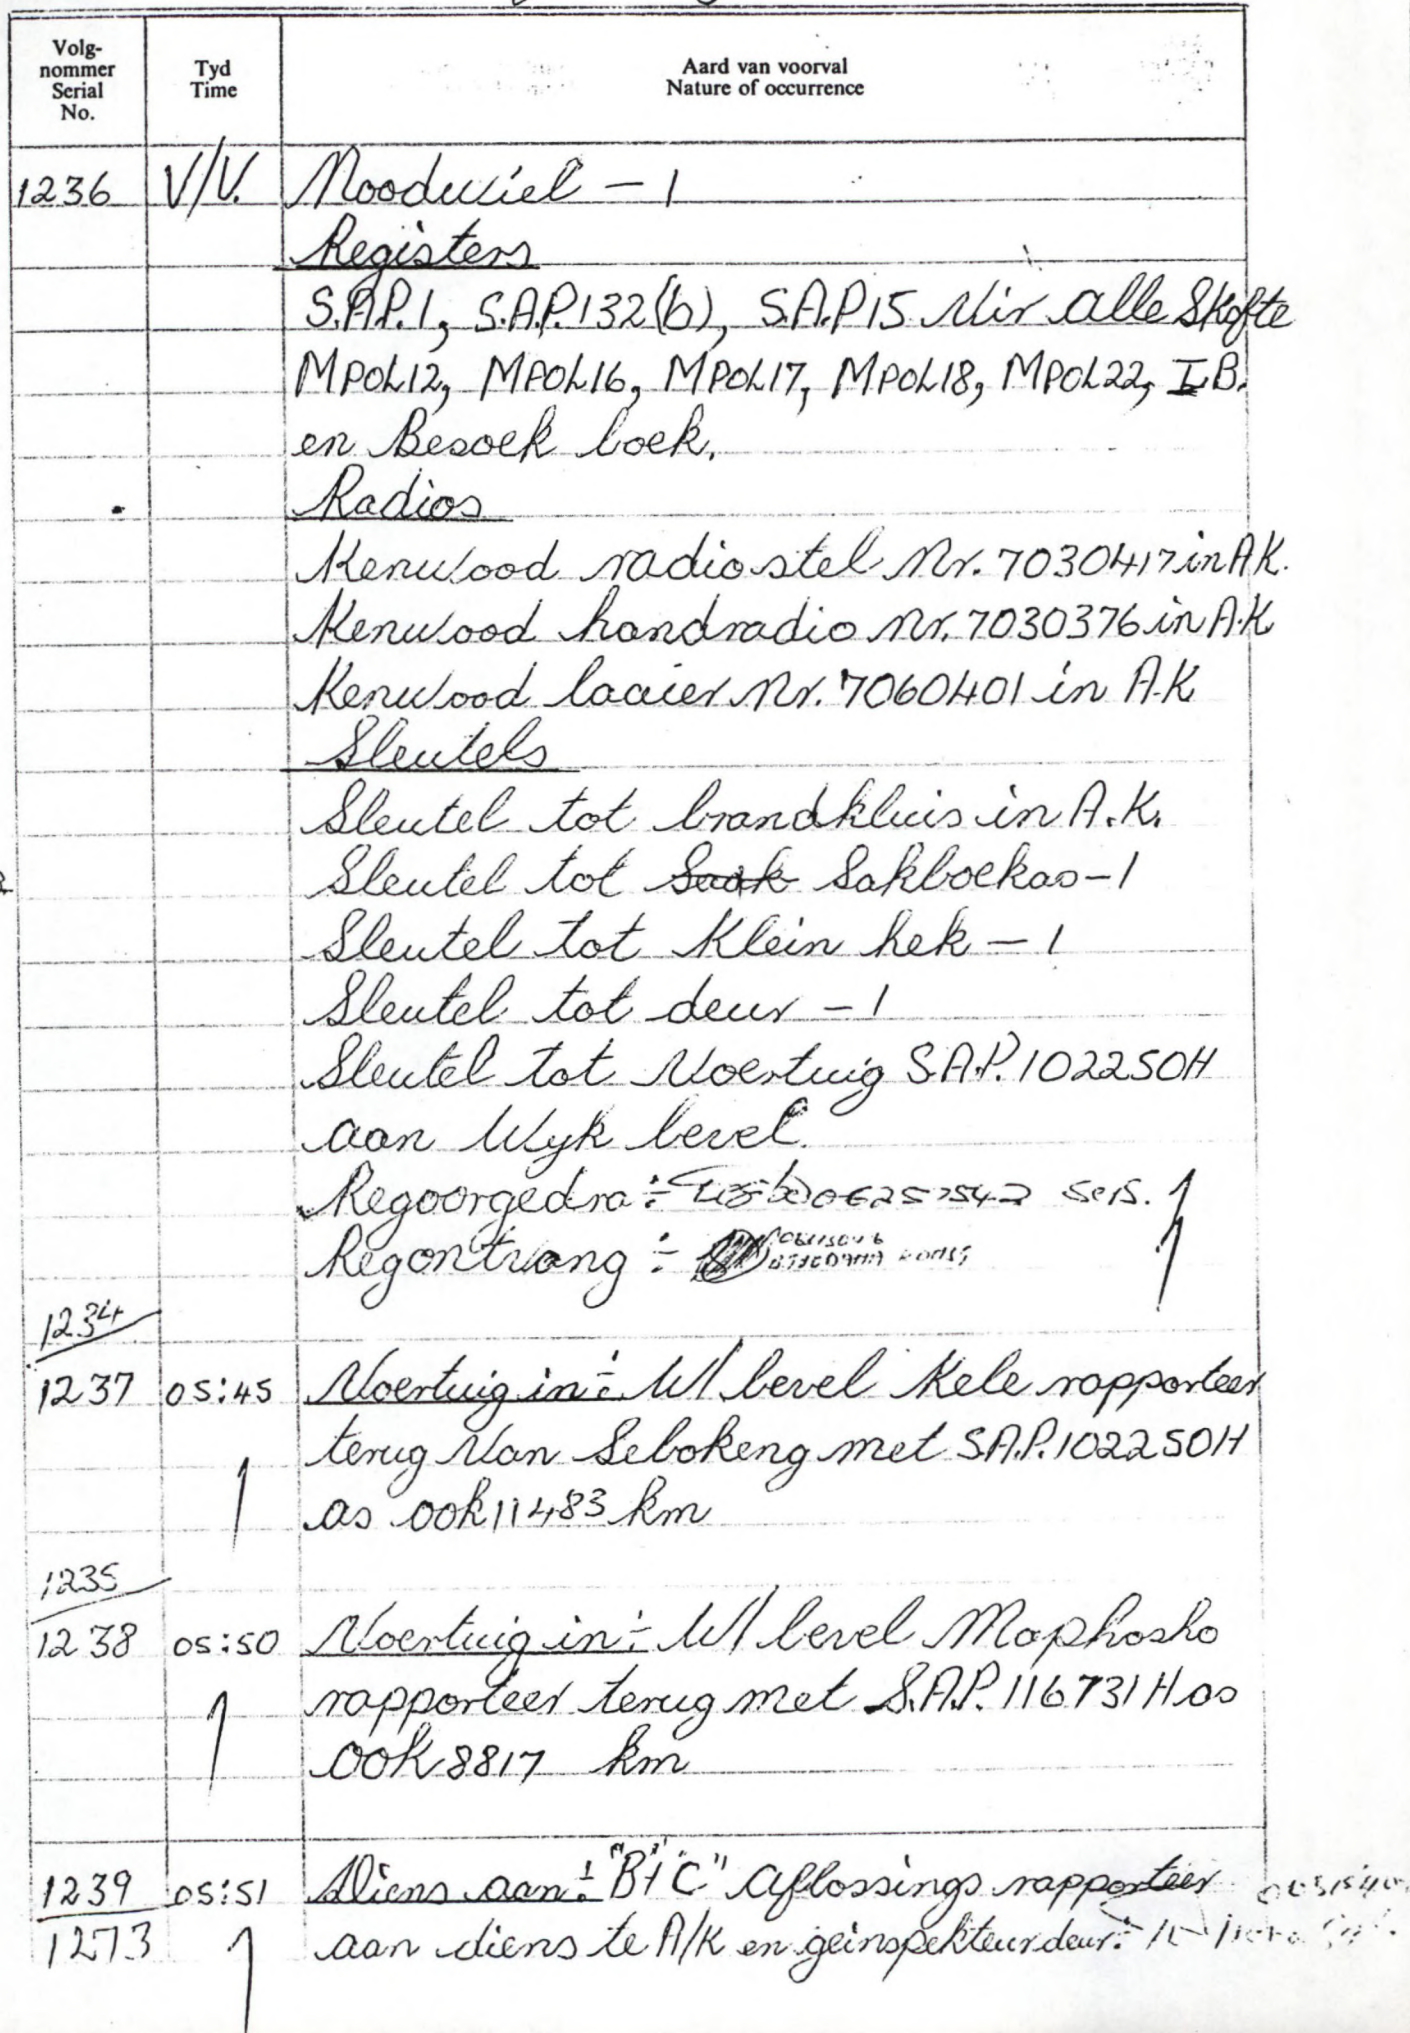 Volg-
nommer
Serial
No.
Tyd
Time
Aard van voorval
Nature of occurrence
1236 V/V. Noodwiel - 1
Registers
S.A.P.1, S.A.P.132(b), S.A.P15 Vir alle Skofte
MPOL12, MPOL16, MPOL17, MPOL18, MPOL22, I.B.
en Besoek boek.
Radios
Kenwood radiostel Nr. 7030417 in A.K.
Kenwood handradio Nr. 7030376 in A.K
Kenwood laaier Nr. 7060401 in A.K
Sleutels
Sleutel tot brandkluis in A.K.
Sleutel tot Saak Sakboekas - 1
Sleutel tot Klein hek - 1
Sleutel tot deur - 1
Sleutel tot Voertuig S.A.P. 102250H
aan Wyk bevel.
Regoorgedra :- Sers.
Regontvang :-
1234
1237 05:45 Voertuig in :- W/bevel Kele rapporteer
terug Van Sebokeng met S.A.P. 102250H
as ook 11483 km
1235
1238 05:50 Voertuig in :- W/bevel Maphosho
rapporteer terug met S.A.P. 116731H as
ook 8817 km
1239 05:51 Diens aan :- "B+C" Aflossings rapporteer
1273 aan diens te A/K en geinspekteur deur:-